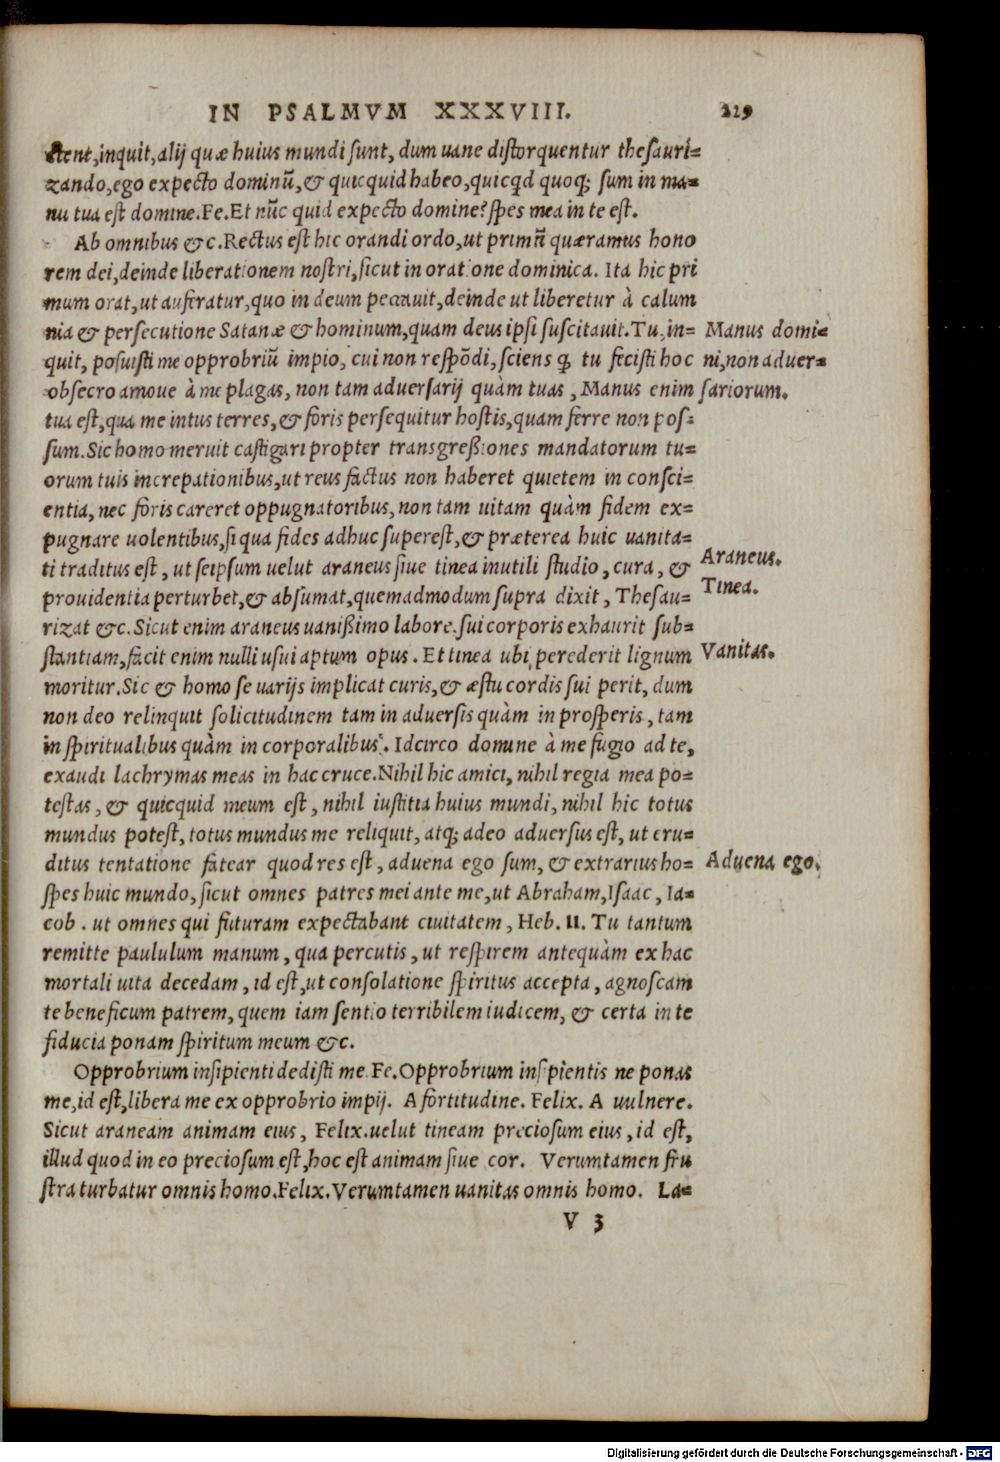 IN PSALMVM XXXVIII. 229
ctent, inquit, alij quæ huius mundi sunt, dum uane distorquentur thesauri=
zando, ego expecto dominũ, & quicquid habeo, quicqd quoq; sum in ma=
nu tua est domine. Fe. Et nũc quid expecto domine? spes mea in te est.
Ab omnibus &c. Rectus est hic orandi ordo, ut primũ quæramus hono
rem dei, deinde liberationem nostri, sicut in oratione dominica. Ita hic pri
mum orat, ut auferatur, quo in deum peccauit, deinde ut liberetur à calum
nia & persecutione Satanæ & hominum, quam deus ipsi suscitauit. Tu, in=
quit, posuisti me opprobriũ impio, cui non respõdi, sciens ꝙ tu fecisti hoc
obsecro amoue à me plagas, non tam aduersarij quàm tuas, Manus enim
Manus domi=
ni, non aduer=
sariorum.
tua est, qua me intus terres, & foris persequitur hostis, quam ferre non pos=
sum. Sic homo meruit castigari propter transgreßiones mandatorum tu=
orum tuis increpationibus, ut reus factus non haberet quietem in consci=
entia, nec foris careret oppugnatoribus, non tam uitam quàm fidem ex=
pugnare uolentibus, si qua fides adhuc superest, & præterea huic uanita=
ti traditus est, ut seipsum uelut araneus siue tinea inutili studio, cura, &
Araneus.
prouidentia perturbet, & absumat, quemadmodum supra dixit, Thesau=
Tinea.
rizat &c. Sicut enim araneus uanißimo labore sui corporis exhaurit sub=
stantiam, facit enim nulli usui aptum opus. Et tinea ubi perederit lignum
Vanitas.
moritur. Sic & homo se uarijs implicat curis, & æstu cordis sui perit, dum
non deo relinquit solicitudinem tam in aduersis quàm in prosperis, tam
in spiritualibus quàm in corporalibus. Idcirco domine à me fugio ad te,
exaudi lachrymas meas in hac cruce. Nihil hic amici, nihil regia mea po=
testas, & quicquid meum est, nihil iustitia huius mundi, nihil hic totus
mundus potest, totus mundus me reliquit, atq; adeo aduersus est, ut eru=
ditus tentatione fatear quod res est, aduena ego sum, & extrarius ho=
Aduena ego.
spes huic mundo, sicut omnes patres mei ante me, ut Abraham, Isaac, Ia=
cob. ut omnes qui futuram expectabant ciuitatem, Heb. 11. Tu tantum
remitte paululum manum, qua percutis, ut respirem antequàm ex hac
mortali uita decedam, id est, ut consolatione spiritus accepta, agnoscam
te beneficum patrem, quem iam sentio terribilem iudicem, & certa in te
fiducia ponam spiritum meum &c.
Opprobrium insipienti dedisti me. Fe. Opprobrium insipientis ne ponas
me, id est, libera me ex opprobrio impij. A fortitudine. Felix. A uulnere.
Sicut araneam animam eius, Felix. uelut tineam preciosum eius, id est,
illud quod in eo preciosum est, hoc est animam siue cor. Veruntamen fru
stra turbatur omnis homo. Felix. Verumtamen uanitas omnis homo. La=
V 3
Digitalisierung gefördert durch die Deutsche Forschungsgemeinschaft - DFG